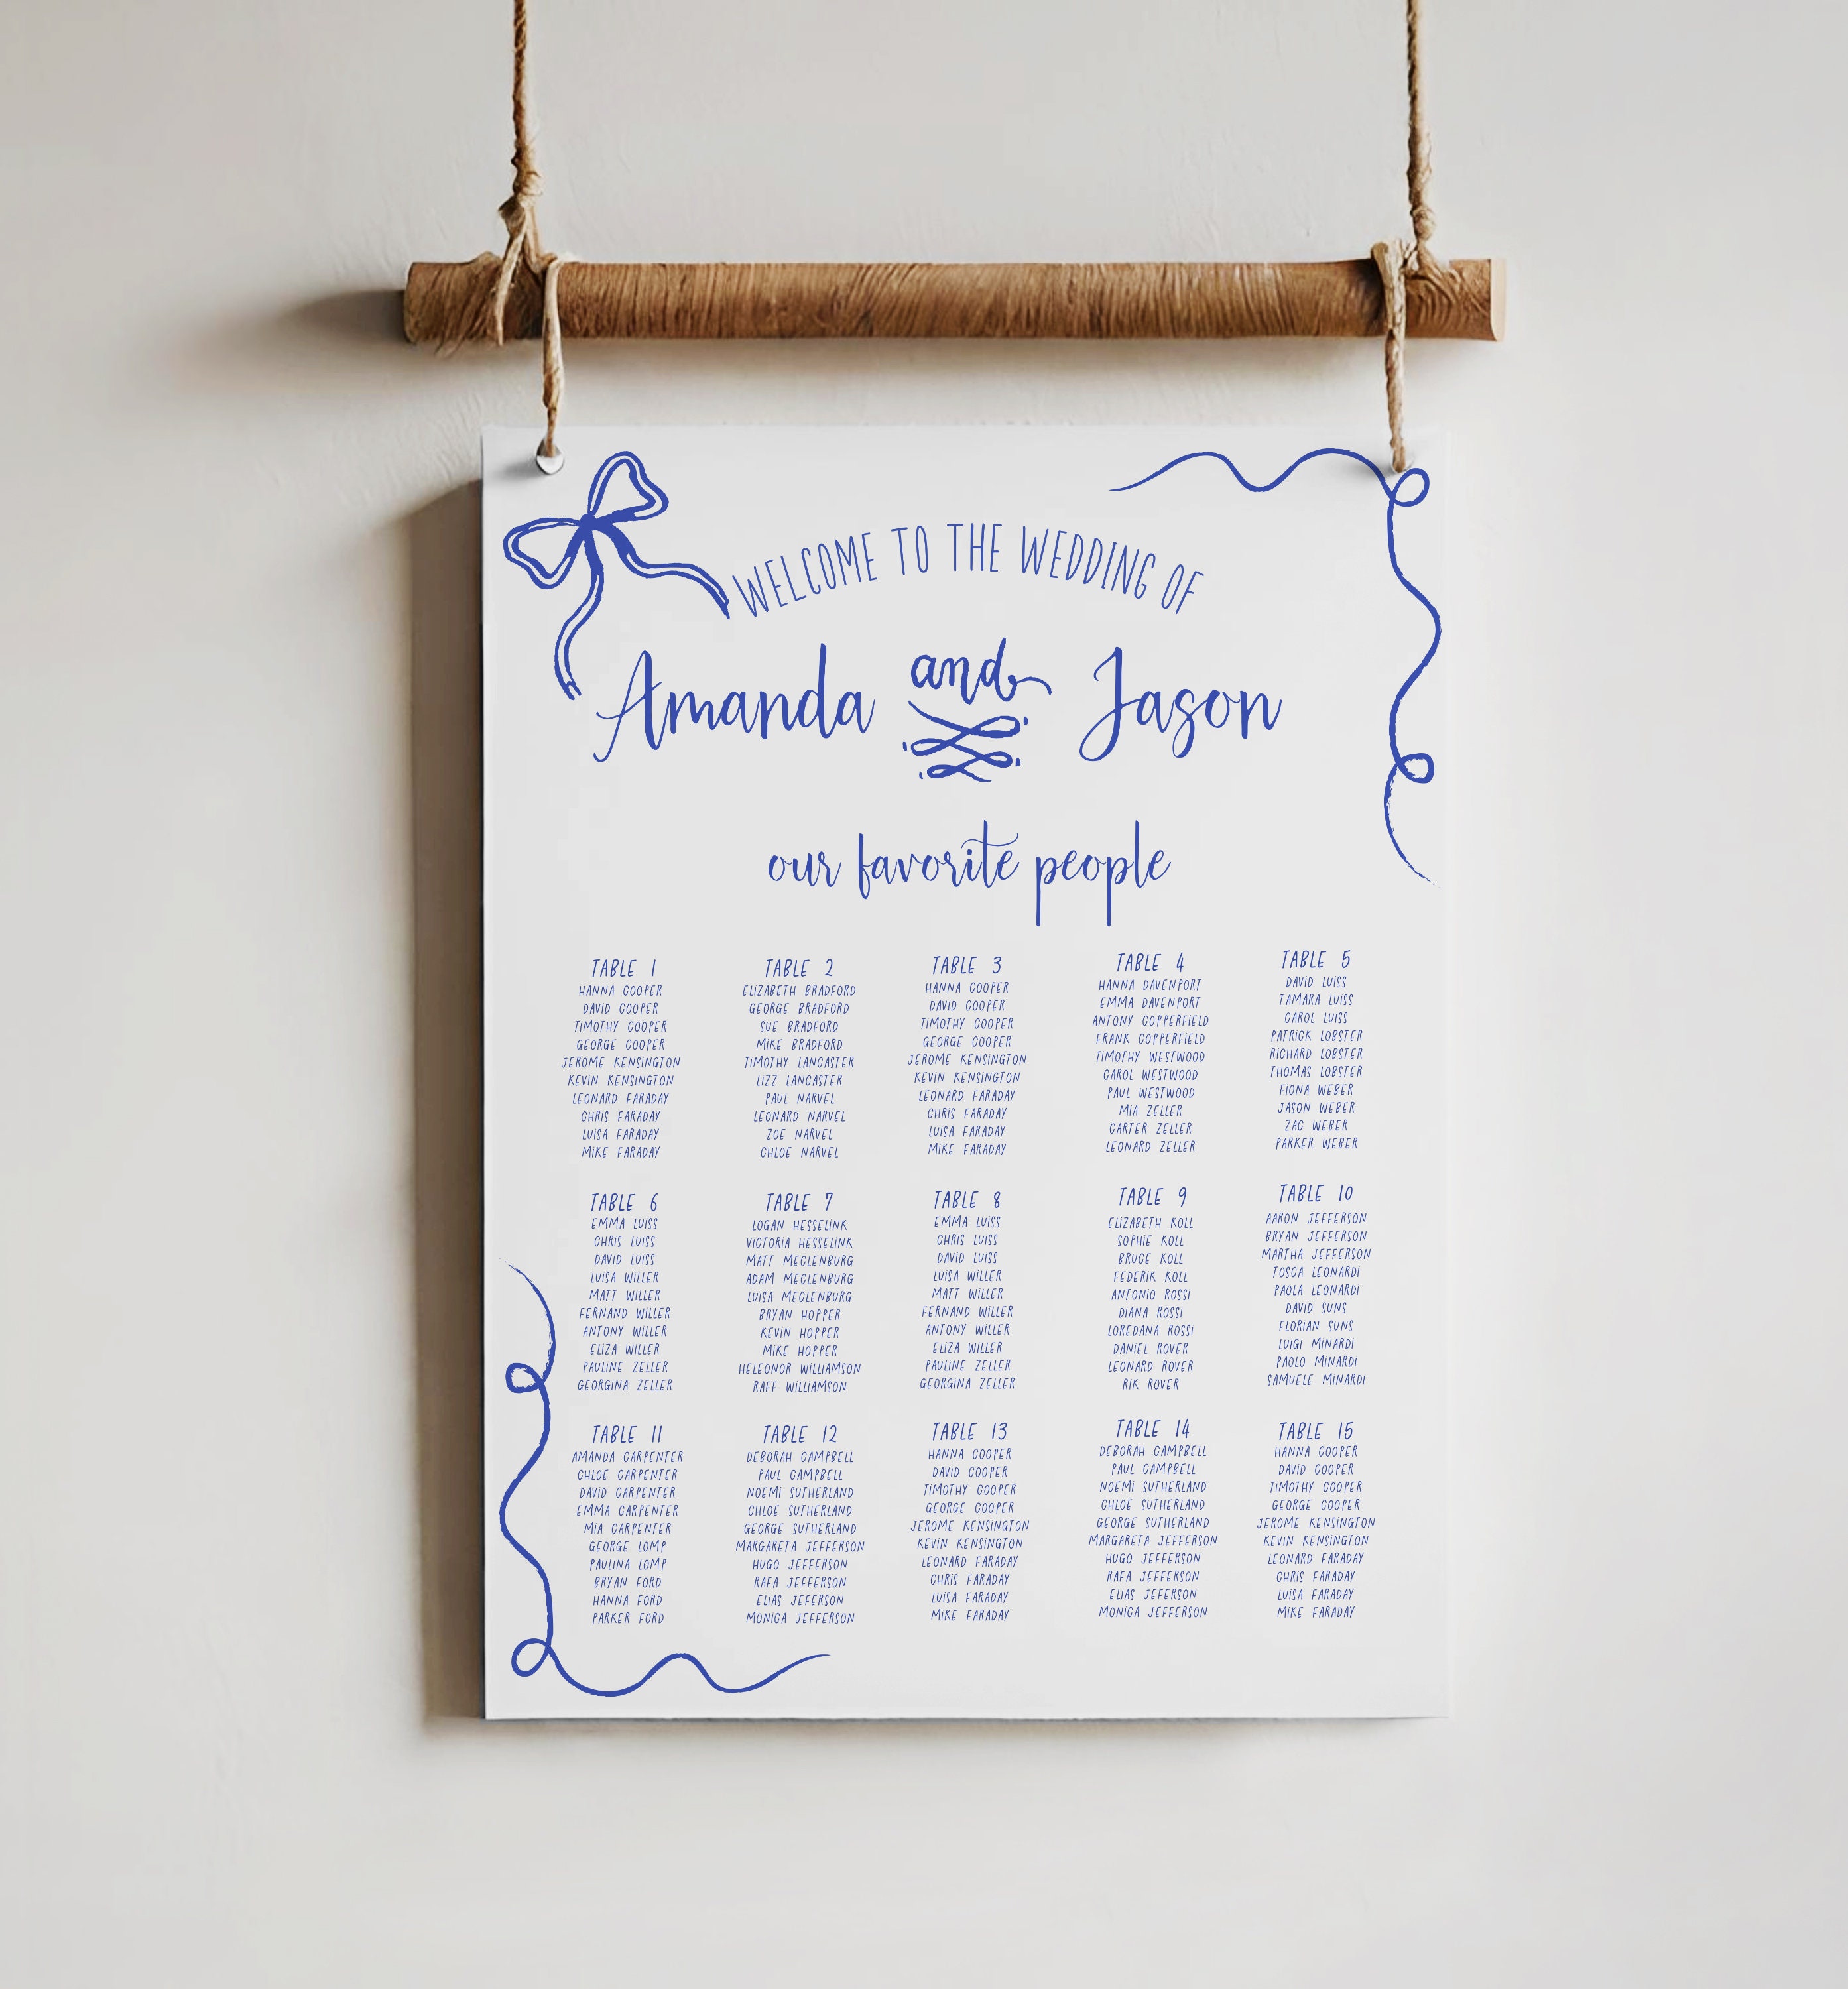 WELCOME TO THE WEDDING OF
Amanda and Jason
our favorite people
TABLE 1
HANNA COOPER
DAVID COOPER
TIMOTHY COOPER
GEORGE COOPER
JEROME KENSINGTON
KEVIN KENSINGTON
LEONARD FARADAY
CHRIS FARADAY
LUISA FARADAY
MIKE FARADAY
TABLE 2
ELIZABETH BRADFORD
GEORGE BRADFORD
SUE BRADFORD
MIKE BRADFORD
TIMOTHY LANCASTER
LIZZ LANCASTER
PAUL NARVEL
LEONARD NARVEL
ZOE NARVEL
CHLOE NARVEL
TABLE 3
HANNA COOPER
DAVID COOPER
TIMOTHY COOPER
GEORGE COOPER
JEROME KENSINGTON
KEVIN KENSINGTON
LEONARD FARADAY
CHRIS FARADAY
LUISA FARADAY
MIKE FARADAY
TABLE 4
HANNA DAVENPORT
EMMA DAVENPORT
ANTONY COPPERFIELD
FRANK COPPERFIELD
TIMOTHY WESTWOOD
CAROL WESTWOOD
PAUL WESTWOOD
MIA ZELLER
CARTER ZELLER
LEONARD ZELLER
TABLE 5
DAVID LUISS
TAMARA LUISS
CAROL LUISS
PATRICK LOBSTER
RICHARD LOBSTER
THOMAS LOBSTER
FIONA WEBER
JASON WEBER
ZAC WEBER
PARKER WEBER
TABLE 6
EMMA LUISS
CHRIS LUISS
DAVID LUISS
LUISA WILLER
MATT WILLER
FERNAND WILLER
ANTONY WILLER
ELIZA WILLER
PAULINE ZELLER
GEORGINA ZELLER
TABLE 7
LOGAN HESSELINK
VICTORIA HESSELINK
MATT MECLENBURG
ADAM MECLENBURG
LUISA MECLENBURG
BRYAN HOPPER
KEVIN HOPPER
MIKE HOPPER
HELEONOR WILLIAMSON
RAFF WILLIAMSON
TABLE 8
EMMA LUISS
CHRIS LUISS
DAVID LUISS
LUISA WILLER
MATT WILLER
FERNAND WILLER
ANTONY WILLER
ELIZA WILLER
PAULINE ZELLER
GEORGINA ZELLER
TABLE 9
ELIZABETH KOLL
SOPHIE KOLL
BRUCE KOLL
FEDERIK KOLL
ANTONIO ROSSI
DIANA ROSSI
LOREDANA ROSSI
DANIEL ROVER
LEONARD ROVER
RIK ROVER
TABLE 10
AARON JEFFERSON
BRYAN JEFFERSON
MARTHA JEFFERSON
TOSCA LEONARDI
PAOLA LEONARDI
DAVID SUNS
FLORIAN SUNS
LUIGI MINARDI
PAOLO MINARDI
SAMUELE MINARDI
TABLE 11
AMANDA CARPENTER
CHLOE CARPENTER
DAVID CARPENTER
EMMA CARPENTER
MIA CARPENTER
GEORGE LOMP
PAULINA LOMP
BRYAN FORD
HANNA FORD
PARKER FORD
TABLE 12
DEBORAH CAMPBELL
PAUL CAMPBELL
NOEMI SUTHERLAND
CHLOE SUTHERLAND
GEORGE SUTHERLAND
MARGARETA JEFFERSON
HUGO JEFFERSON
RAFA JEFFERSON
ELIAS JEFERSON
MONICA JEFFERSON
TABLE 13
HANNA COOPER
DAVID COOPER
TIMOTHY COOPER
GEORGE COOPER
JEROME KENSINGTON
KEVIN KENSINGTON
LEONARD FARADAY
CHRIS FARADAY
LUISA FARADAY
MIKE FARADAY
TABLE 14
DEBORAH CAMPBELL
PAUL CAMPBELL
NOEMI SUTHERLAND
CHLOE SUTHERLAND
GEORGE SUTHERLAND
MARGARETA JEFFERSON
HUGO JEFFERSON
RAFA JEFFERSON
ELIAS JEFERSON
MONICA JEFFERSON
TABLE 15
HANNA COOPER
DAVID COOPER
TIMOTHY COOPER
GEORGE COOPER
JEROME KENSINGTON
KEVIN KENSINGTON
LEONARD FARADAY
CHRIS FARADAY
LUISA FARADAY
MIKE FARADAY